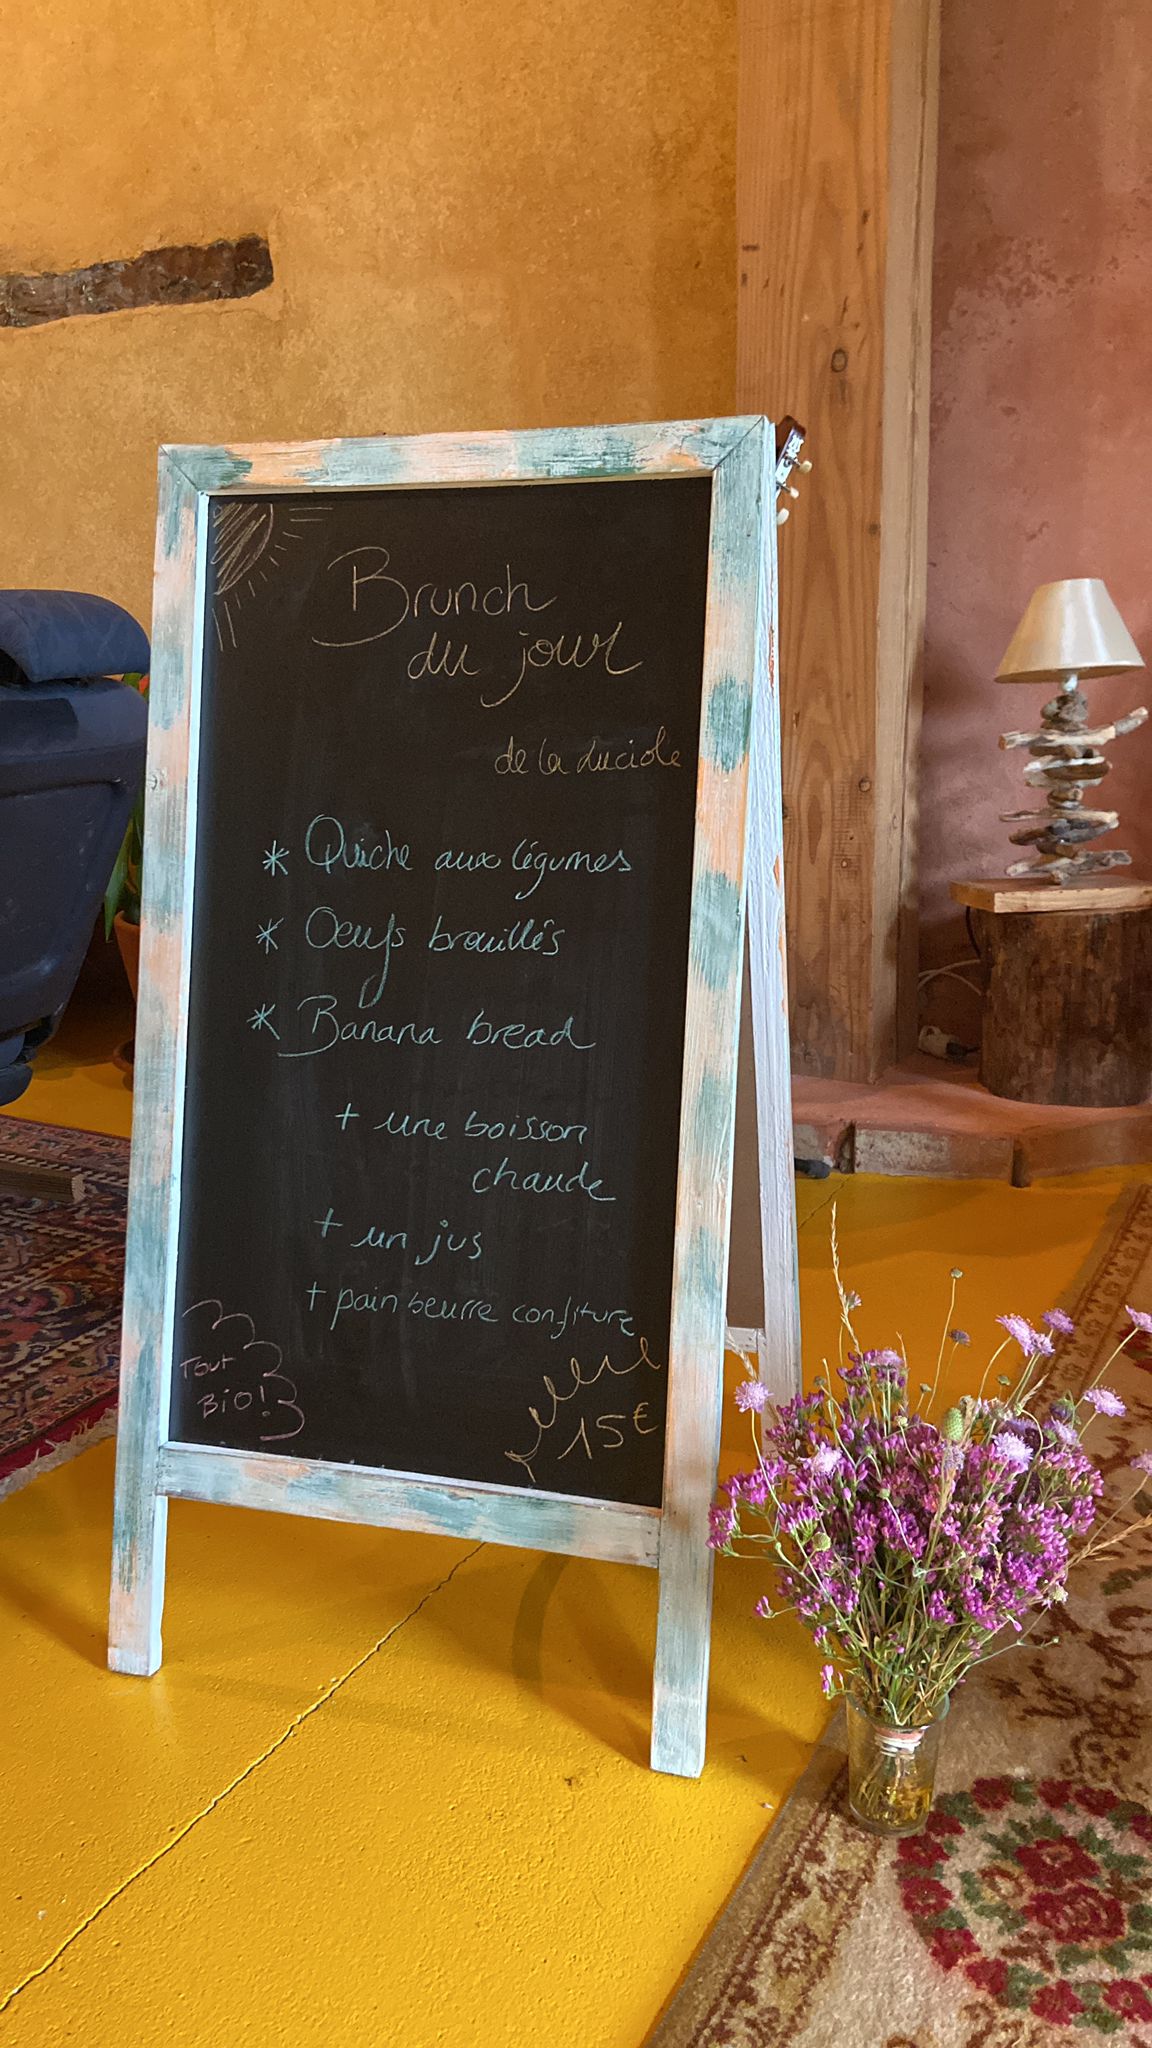 Brunch
du jour
de la Luciole
* Quiche aux légumes
* Oeufs brouillés
* Banana bread
+ une boisson
chaude
+ un jus
+ pain beurre confiture
Tout
BiO!
15€